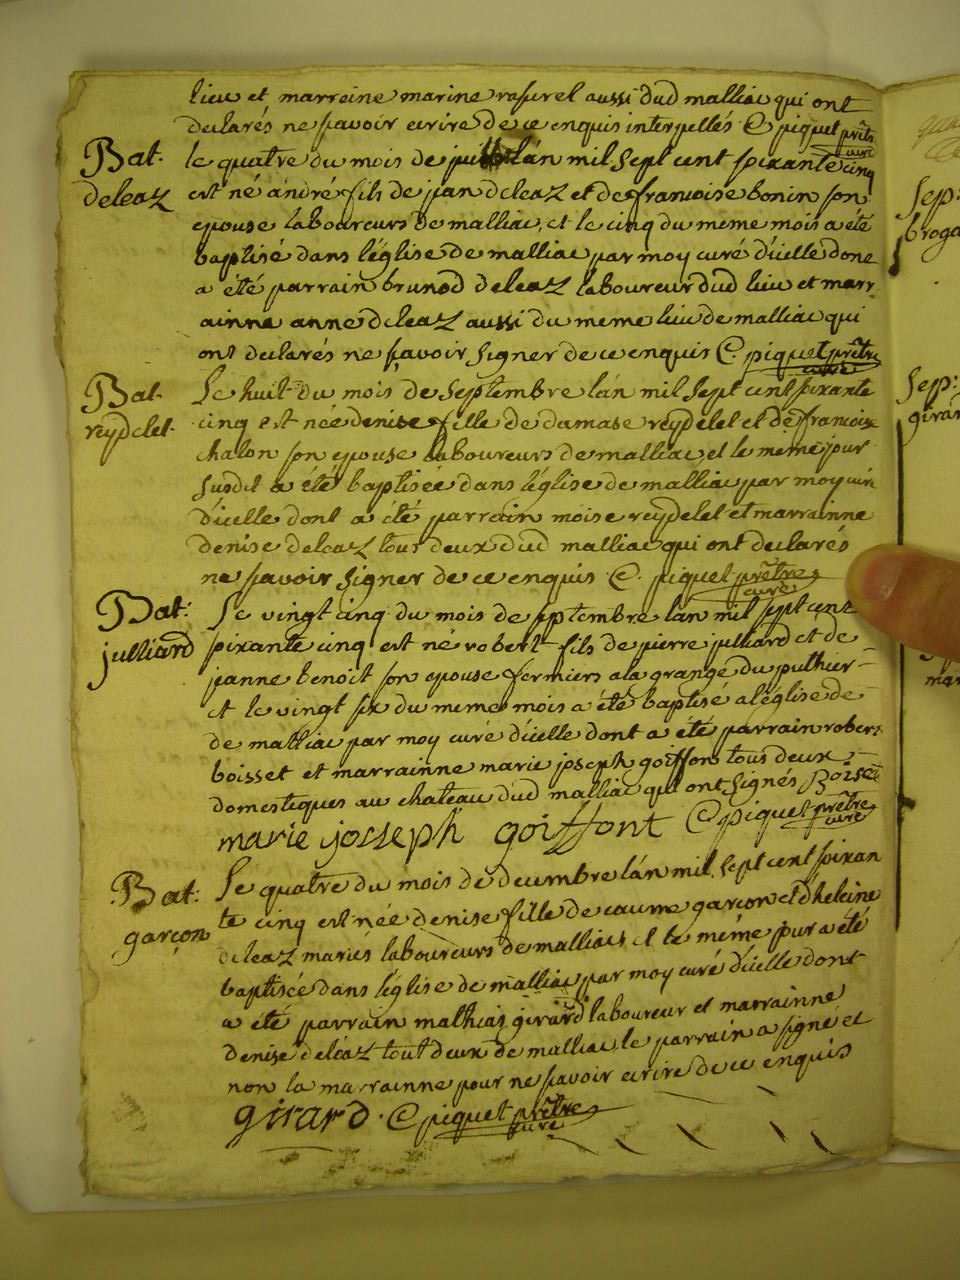 lieu et marreine marine rasurel aussi dud malliac qui ont
declarés ne savoir ecrire de ce enquis interpellés C piquet prêtre
curé
Bat. le quatre du mois de lân mil sept cent soixante cinq
deleaz est né andré fils de jean deleaz et de francoise bonin son
epouse laboureurs de malliac, et le cinq du meme mois a été
baptisé dans l'église de malliac par moy curé d'icelle donc
a été parrain brunod deleaz laboureur dud lieu et marr
ainne anne deleaz aussi du meme lieu de malliac qui
ont declarés ne savoir signer de ce enquis C. piquet prêtre
curé
Bat. Le huit du mois de septembre lân mil sept cent soixante
reydelet. cinq est née denise fille de damase reydelet et de francoise
chalon son epouse laboureurs de malliac et le meme jour
susdit a été baptisée dans l'église de malliac par moy curé
d'icelle dont a été parrain moise reydelet et marrainne
denise deleaz tous deux dud malliac qui ont declarés
ne savoir signer de ce enquis C. piquet prêtre
curé
Bat: Le vingt cinq du mois de septembre lan mil sept cent
julliard soixante cinq est né robert fils de pierre julliard et de
jeanne benoit son epouse fermiers a la grange du
et le vingt six du meme mois a été baptisé a l'église de
de malliac par moy curé d'icelle dont a été parrain robert
boisset et marrainne marie joseph goiffon tous deux
domestiques au chateau dud malliac qui ont signés Boisset
marie josseph goiffont C piquet prêtre
curé
Bat: Le quatre du mois de decembre lân mil sept cent soixan
garçon te cinq est née denise fille de garçon et d'heleine
deleaz mariés laboureurs de malliac, et le même jour a été
baptisée dans l'église de malliac par moy curé d'icelle dont
a été parrain mathias girard laboureur et marrainne
denise deléaz tout deux de malliac le parrain a signé et
non la marrainne pour ne savoir ecrire de ce enquis
girard. C piquet prêtre
curé
Sep:
broga
Sep:
girar
mar